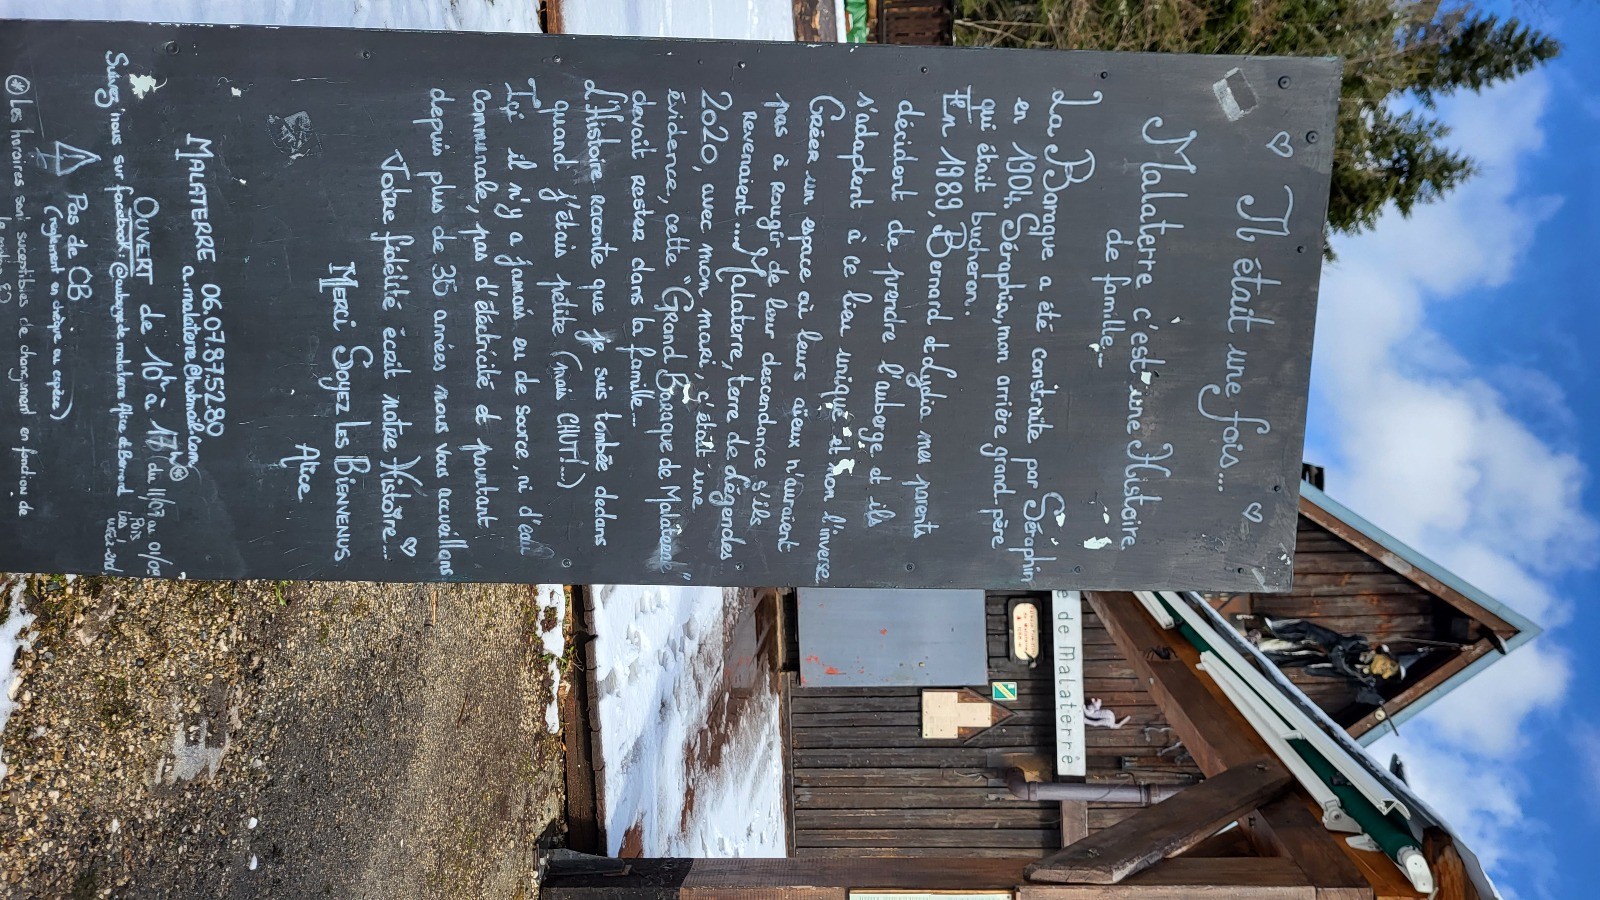 ♡ Il était une fois... ♡
Malaterre c'est une Histoire
de famille...
La Baraque a été construite par Séraphin
en 1904, Séraphin, mon arrière grand-père
qui était bucheron.
En 1989, Bernard et Lydia mes parents
décident de prendre l'auberge et ils
s'adaptent à ce lieu unique et non l'inverse
Créer un espace où leurs aïeux n'auraient
pas à rougir de leur descendance s'ils
revenaient... Malaterre, terre de légendes
2020, avec mon mari, c'était une
évidence, cette "Grand Baraque de Malaterre"
devait rester dans la famille...
L'Histoire raconte que je suis tombée dedans
quand j'étais petite (mais CHUT!...)
Içi il n'y a jamais eu de source, ni d'eau
communale, pas d'éléctricité et pourtant
depuis plus de 35 années nous vous accueillons
Votre fidélité écrit notre Histoire... ♡
MERCI SOYEZ LES BIENVENUS
Alice
MALATERRE 06.07.87.52.80
a.malaterre@hotmail.com
OUVERT de 10h à 17h* du 11/07 au 01/09
Puis
les week-end
Suivez nous sur facebook: @auberge de malaterre Alice et Bernard
⚠ Pas de CB
(réglement en chèque ou espèce)
* Les horaires sont susceptibles de changement en fonction de
e de Malaterre